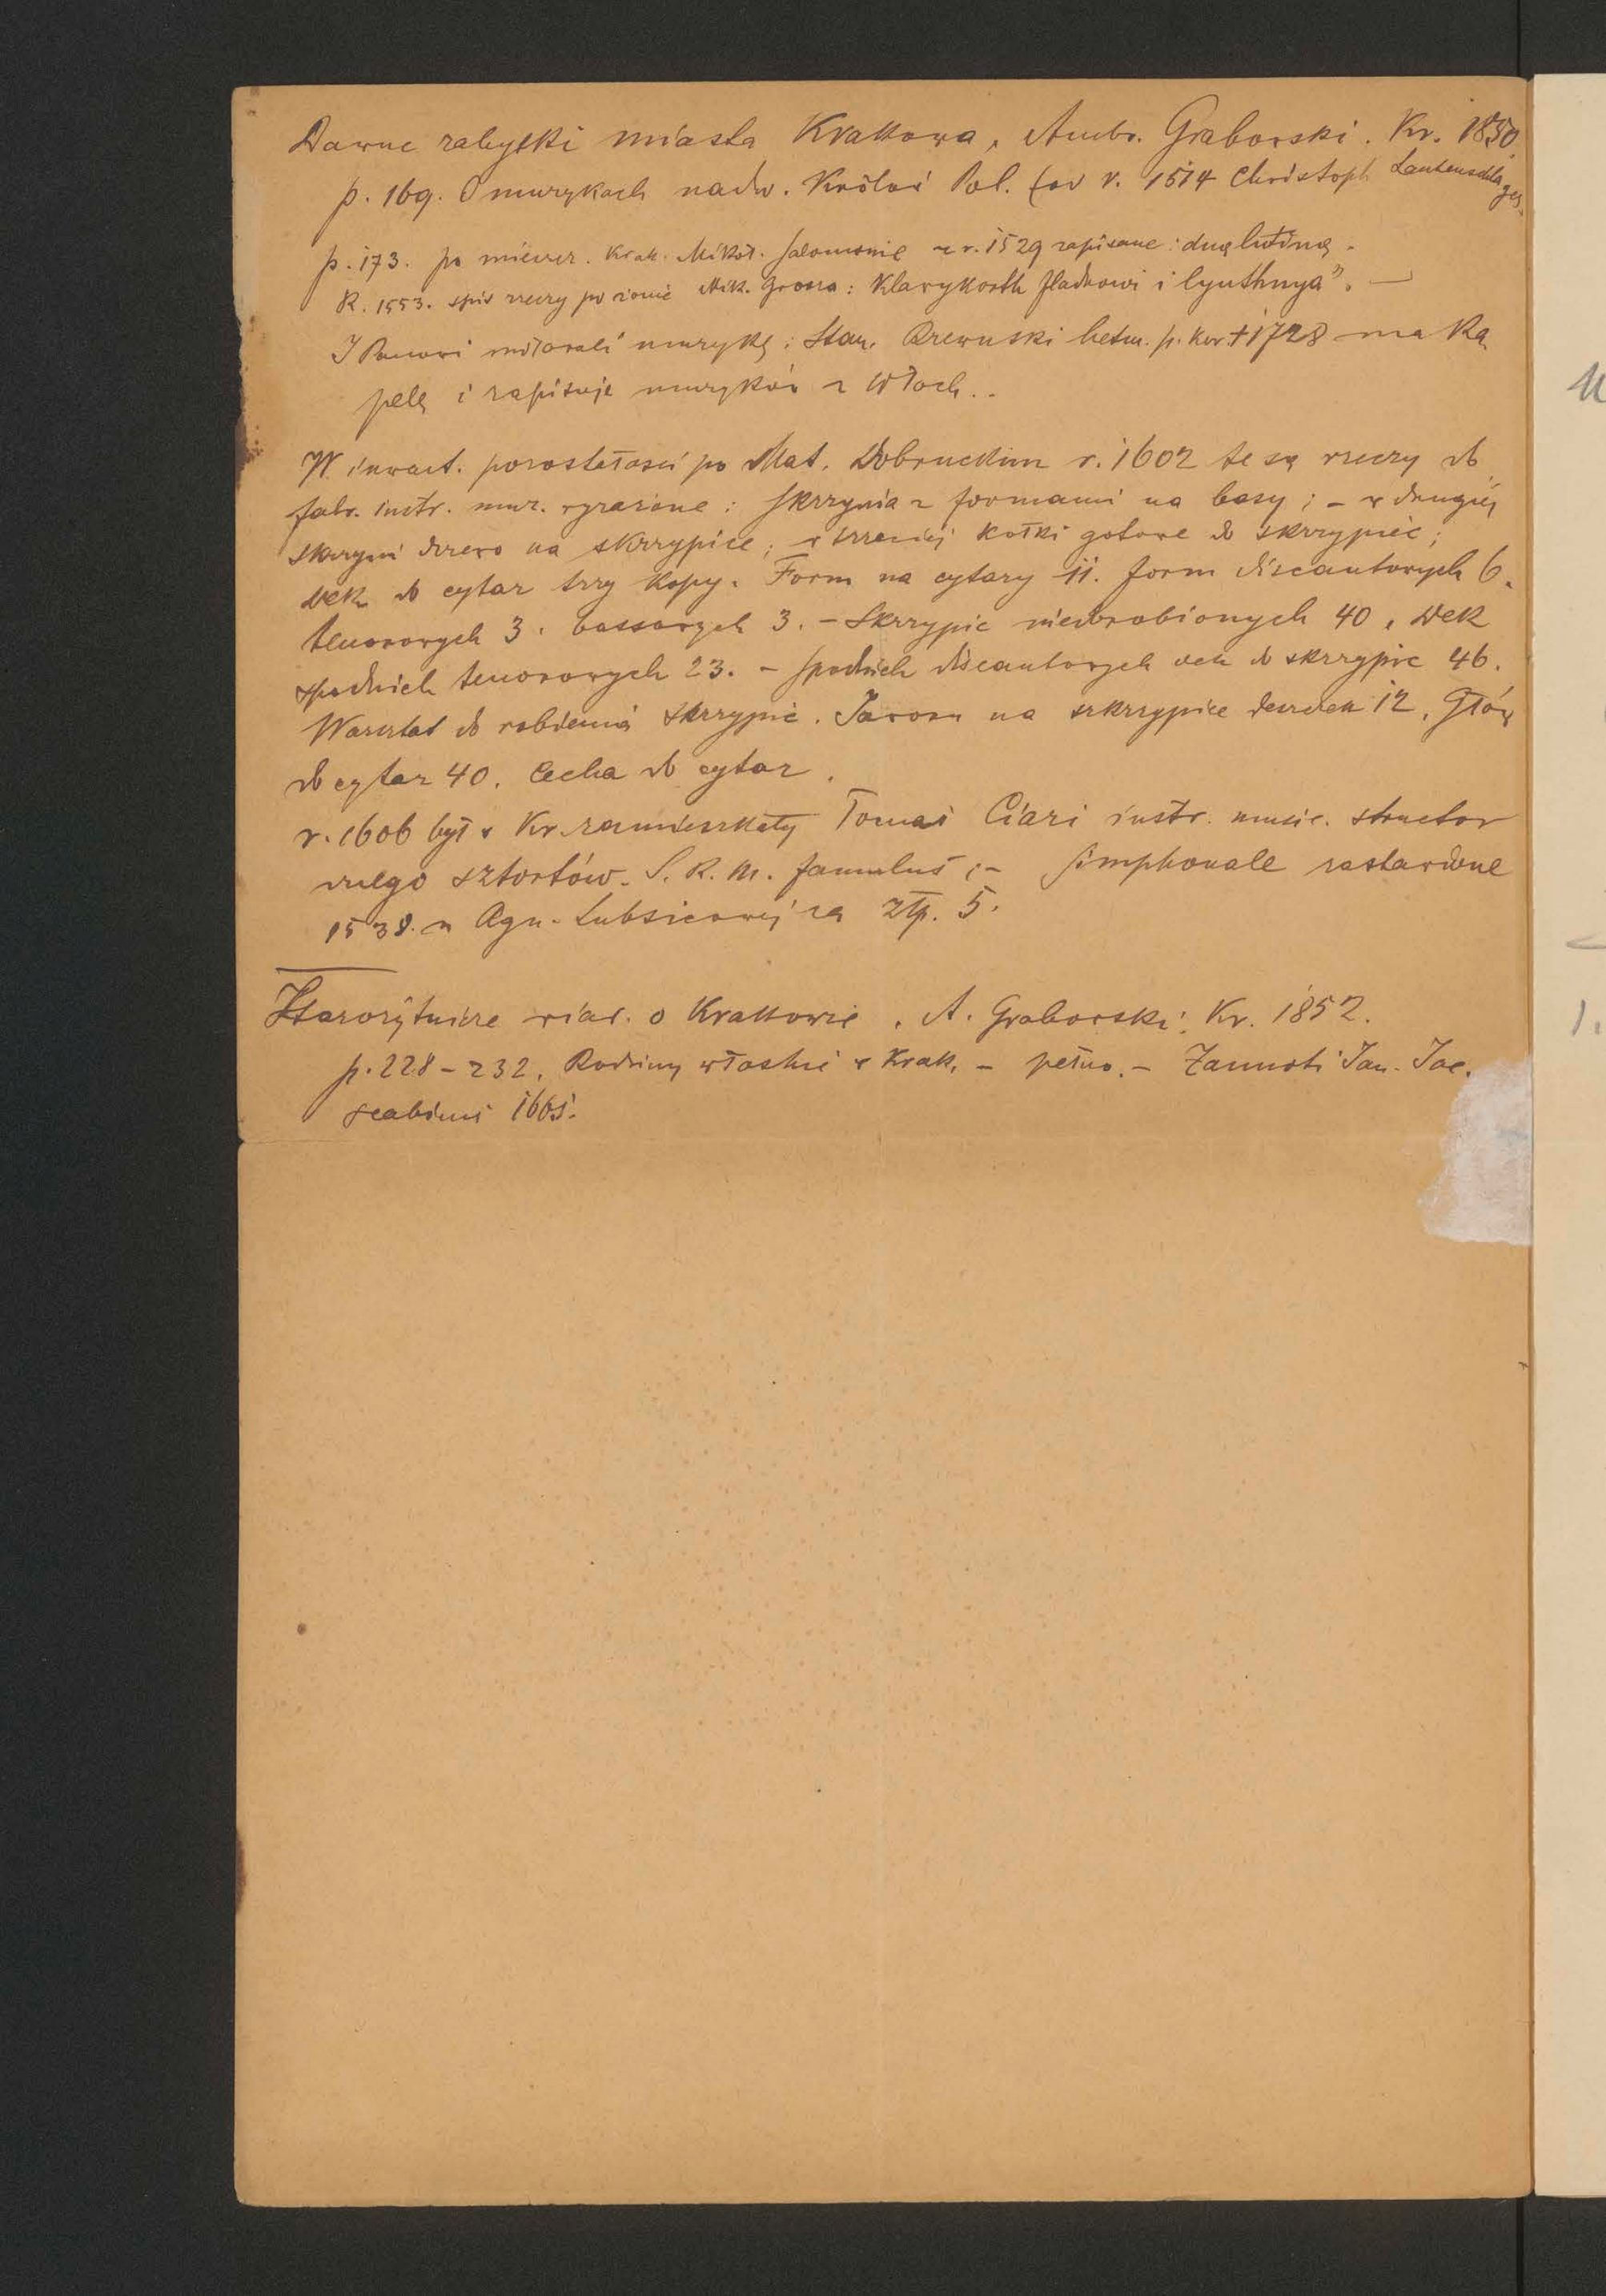 Dawne zabytki miasta Krakowa, Ambr. Grabowski. Kr. 1850.
p. 169. O muzykach nadw. Królów Pol. (od r. 1514 Christoph Lautenschlager
p. 173. po mieszcz. Krak. Mikoł. Salomonie z r. 1529 zapisane: duę lutinę.
R. 1553. spis rzeczy po żonie Mik. Grossa: Klavykorth Sladkowi i lyuthnya".—
I Panowi miłowali muzykę: Stan. Rzewuski hetm. p. kor. † 1728 ma ka
pelę i zapisuje muzyków z Włoch..
W inwent. pozostałości po Mat. Dobruckim r. 1602 te są rzeczy do
fabr. instr. muz. wyrażone: Skrzynia z formami na basy; - w drugiej
skrzyni drzewo na skrzypice; w trzeciej kołki gotowe do skrzypiec;
dek do cytar trzy kopy. Form na cytary 11. form discantowych 6.
tenorowych 3. bassowych 3. - Skrzypic niedorobionych 40, dek
spodnich tenorowych 23. - spodnich discantowych dek do skrzypic 46.
Warsztat do robienia skrzypic. Jawor na szkrzypice deszczek 12, Głów
do cytar 40. Cecha do cytar.
r. 1606 był w Kr. zamieszkały Tomas Ciari instr. music. structor
vulgo sztortów. S. R. M. famulus; - Simphonale zastawione
1538. u Agn. Lubsicowej za złp. 5.
Starożytnicze wiad. o Krakowie. A. Grabowski. Kr. 1852.
p. 228 - 232. Rodziny włoskie w Krak. - pełno. - Zannoti Jan. Jac.
scabinus 1665.
1.